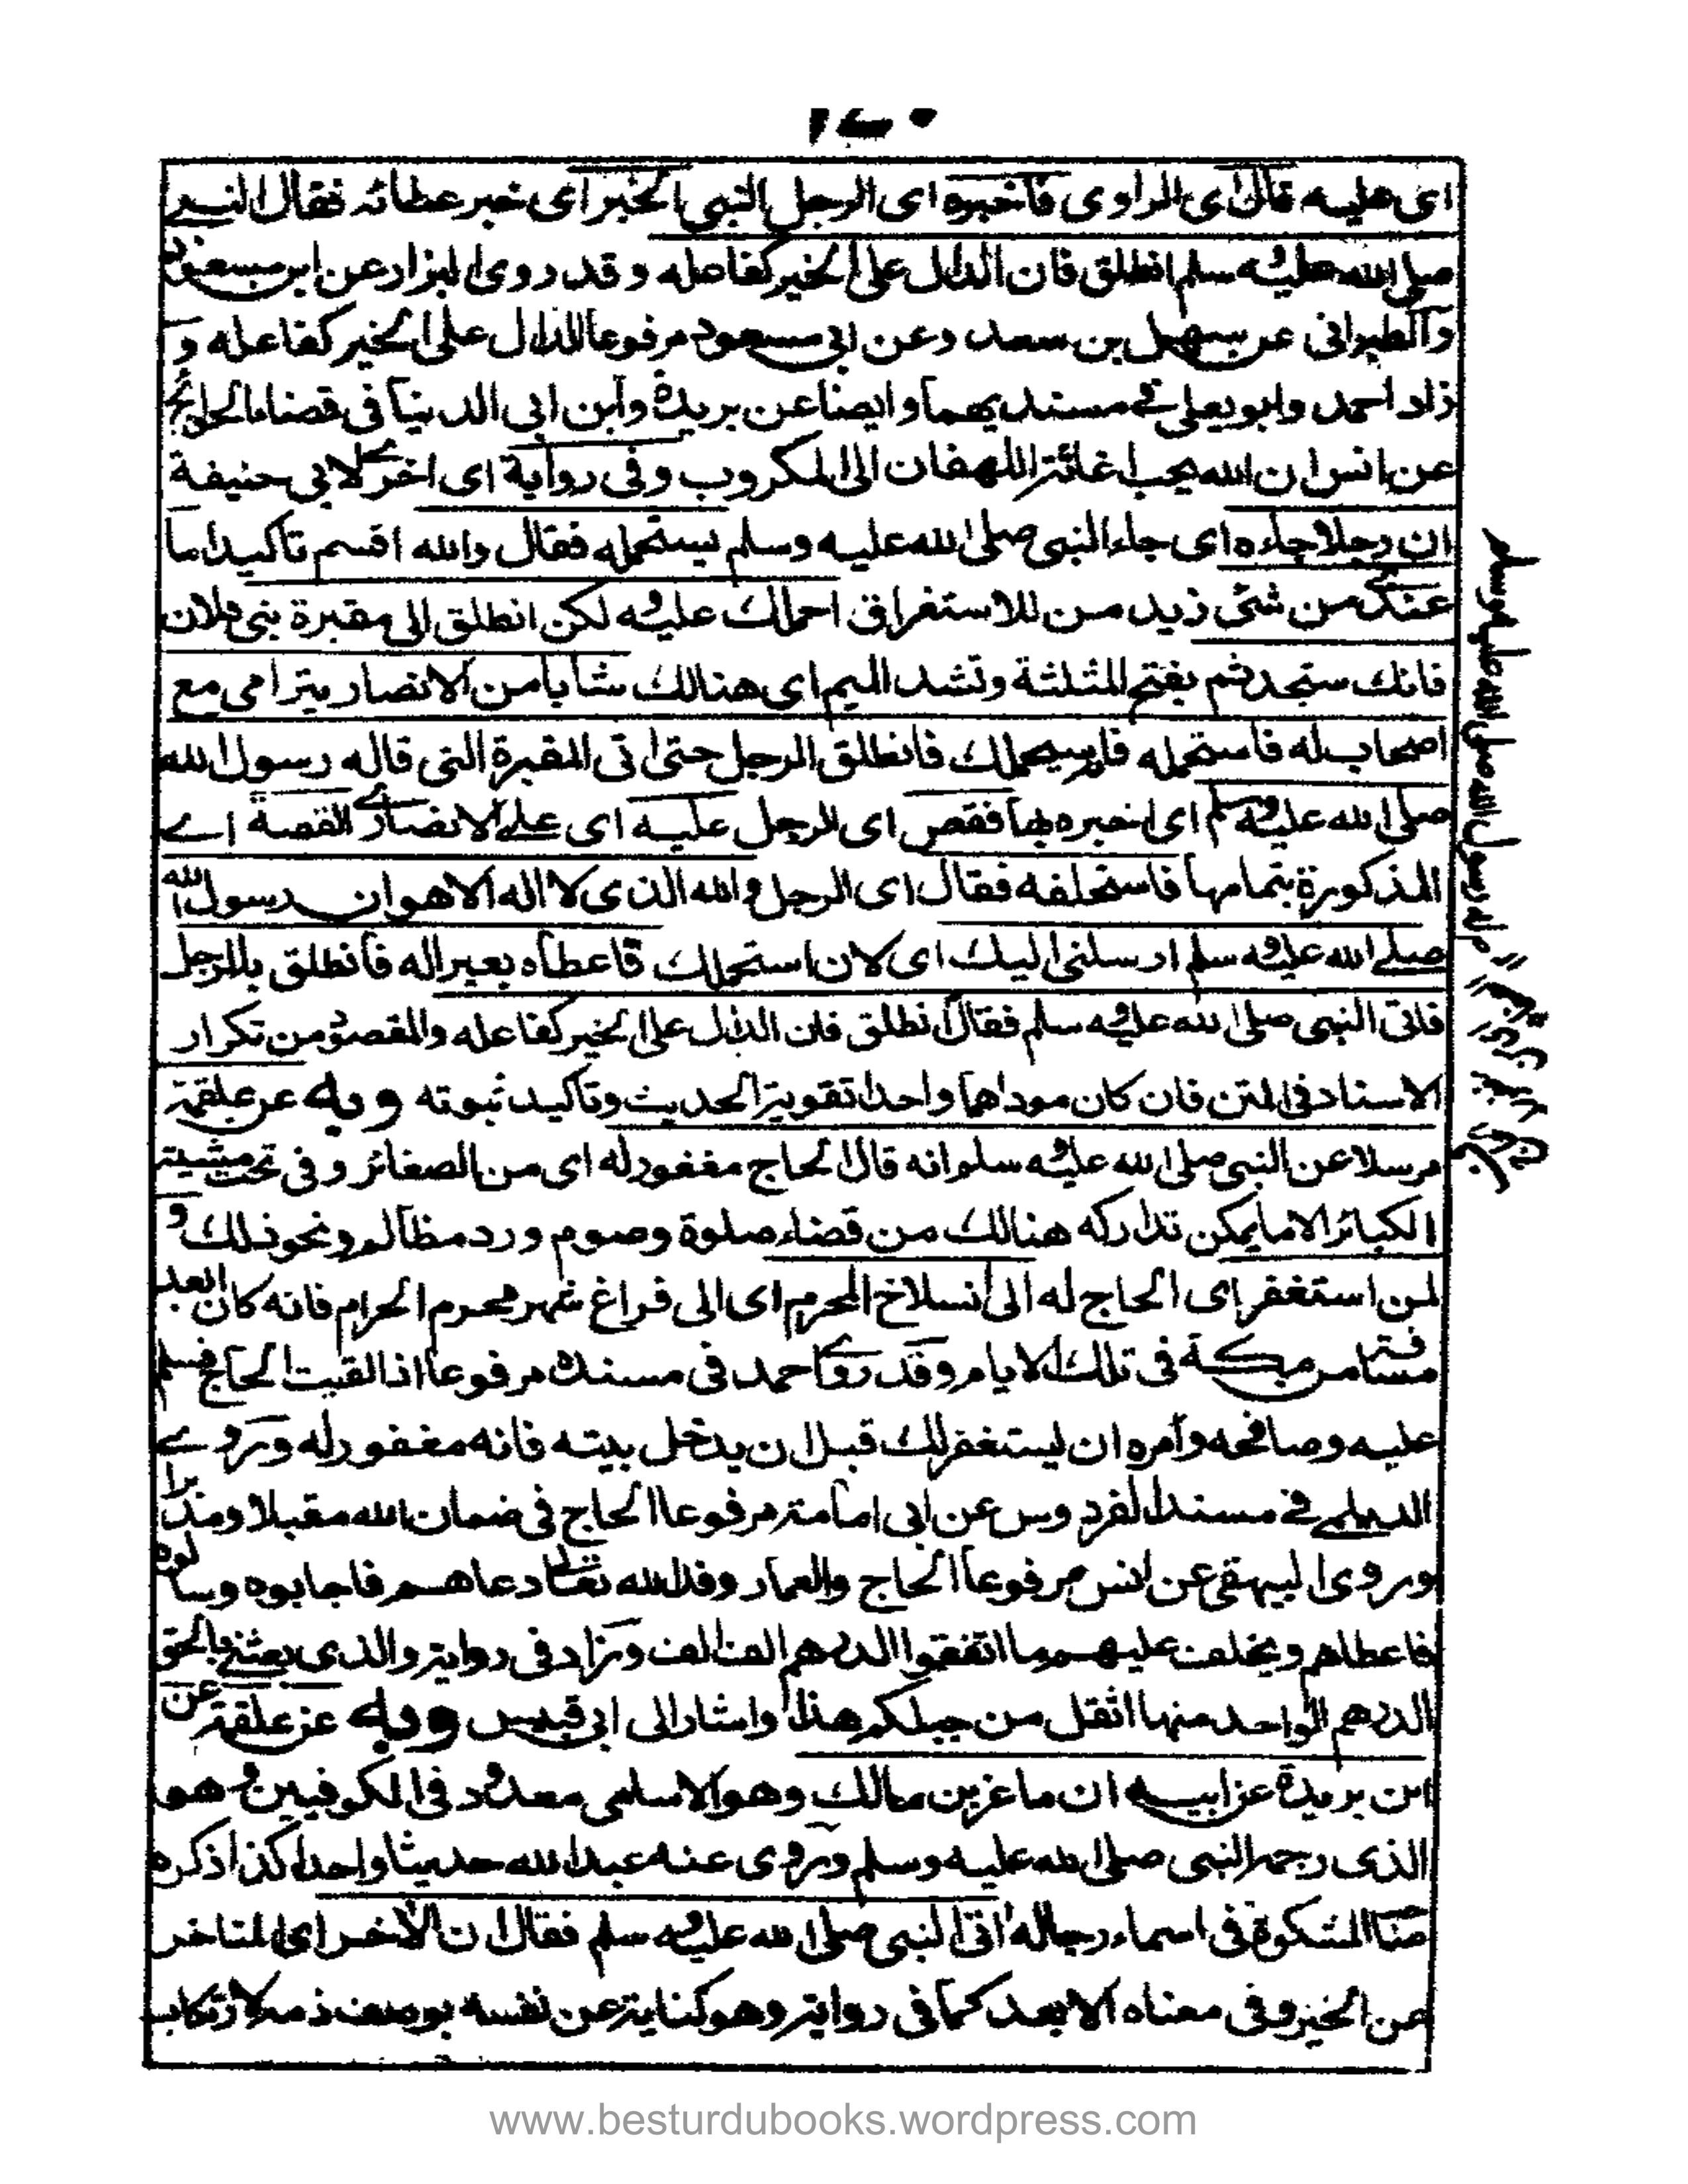 ١٧٠
اى عليه قال اى الراوى فاخبره اى الرجل النبى الخبر اى خبر عطائه فقال النبى
صلى الله عليه وسلم انطلق فان الدال على الخير كفاعله وقد روى البزار عن ابن مسعود
والطبرانى عن سهل بن سعد وعن ابى مسعود مرفوعا الدال على الخير كفاعله و
زاد احمد وابو يعلى فى مسنديهما وايضا عن بريدة وابن ابى الدنيا فى قضاء الحوائج
عن انس ان الله يحب اغاثة اللهفان اى المكروب وفى رواية اى اخرى لابى حنيفة
ان رجلا جاءه اى جاء النبى صلى الله عليه وسلم يستحمله فقال والله اقسم تاكيدا ما
عندى من شئ زيد من للاستغراق احملك عليه ولكن انطلق الى مقبرة بنى فلان
فانك ستجد ثم بفتح المثلثة وتشد الميم اى هنالك شابا من الانصار يترامى مع
اصحاب له فاستحمله فانه سيحملك فانطلق الرجل حتى اتى المقبرة التى قاله رسول الله
صلى الله عليه وسلم اى اخبره بها فقص اى الرجل عليه اى على الانصارى القصة اے
المذكورة بتمامها فاستحلفه فقال اى الرجل والله الذى لا اله الا هو ان رسول الله
صلى الله عليه وسلم ارسلنى اليك اى لان استحملك فاعطاه بعيرا له فانطلق بالرجل
فاتى النبى صلى الله عليه وسلم فقال انطلق فان الدال على الخير كفاعله والمقصود من تكرار
الاسناد فى المتن فان كان موداهما واحدا تقوية الحديث وتاكيد ثبوته وبه عن علقمة
مرسلا عن النبى صلى الله عليه وسلم انه قال الحاج مغفور له اى من الصغائر وفى تحت مشيته
الكبائر الا ما يمكن تداركه هنالك من قضاء صلوة وصوم ورد مظالم ونحو ذلك و
لمن استغفر اى الحاج له الى انسلاخ المحرم اى الى فراغ شهر محرم الحرام فانه كان ابعد
مسافته من مكة فى تلك الايام وقد روى احمد فى مسنده مرفوعا اذا لقيت الحاج فسلم
عليه وصافحه وأمره ان يستغفر لك قبل ان يدخل بيته فانه مغفور له وروے
الديلمى فى مسند الفردوس عن ابى امامة مرفوعا الحاج فى ضمان الله مقبلا ومدبرا
وروى البيهقى عن انس مرفوعا الحاج والعمار وفد الله تعالى دعاهم فاجابوه وسالوه
فاعطاهم ويخلف عليهم ما انفقوا الدرهم الف الف وزاد فى رواية والذى بعثنى بالحق
الدرهم الواحد منها اثقل من جبلكم هذا واشار الى ابى قبيس وبه عن علقمة عن
ابن بريدة عن ابيه ان ماعز بن مالك وهو الاسلمى معدود فى الكوفيين وهو
الذى رجمه النبى صلى الله عليه وسلم وروى عنه عبد الله حديثا واحدا كذا ذكره
صا المشكوة فى اسماء رجاله اتى النبى صلى الله عليه وسلم فقال ان الأخر اى المتاخر
عن الخير وفى معناه الابعد كما فى رواية وهو كناية عن نفسه بوصف ذم لارتكاب
رسول الله صلى الله عليه وسلم
www.besturdubooks.wordpress.com